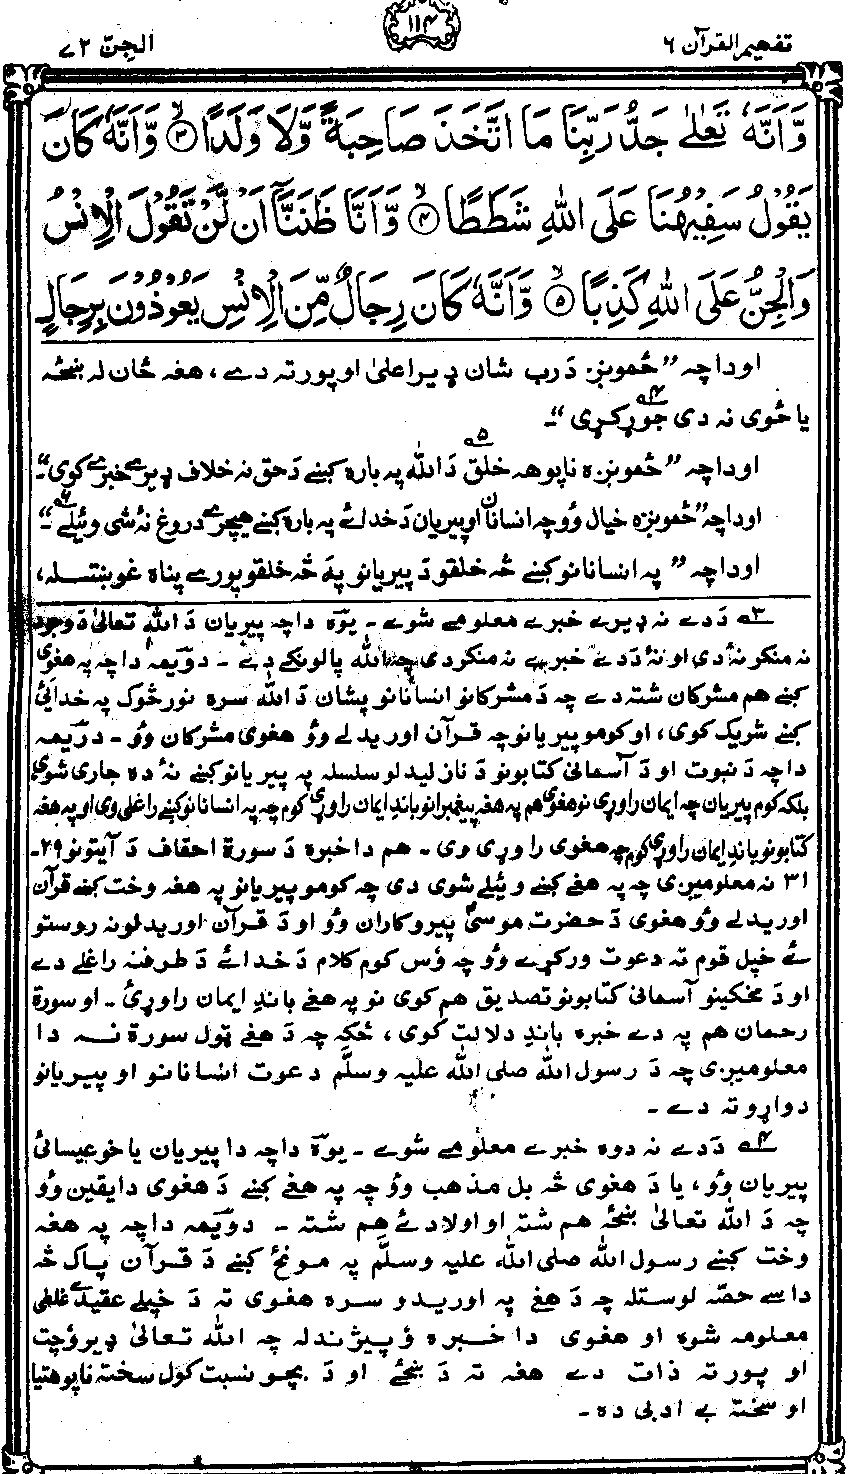 تفهیم القرآن ۶
۱۱۴
الجن ۷۲
وَّاَنَّهٗ تَعٰلٰى جَدُّ رَبِّنَا مَا اتَّخَذَ صَاحِبَةً وَّلَا وَلَدًا ۙ﴿۳﴾ وَّاَنَّهٗ كَانَ
يَقُوْلُ سَفِيْهُنَا عَلَى اللّٰهِ شَطَطًا ۙ﴿۴﴾ وَّاَنَّا ظَنَنَّآ اَنْ لَّنْ تَقُوْلَ الْاِنْسُ
وَالْجِنُّ عَلَى اللّٰهِ كَذِبًا ۙ﴿۵﴾ وَّاَنَّهٗ كَانَ رِجَالٌ مِّنَ الْاِنْسِ يَعُوْذُوْنَ بِرِجَالٍ
اوداچہ ”څمونږ دَ رب شان ډیر اعلیٰ او پورتہ دے، هغہ ځان لہ ښځہ
یا ځوی نہ دی جوړ کړی“۔ ۴
اوداچہ ”څمونږہ ناپوهہ خلق ۵ دَ اللّٰه پہ بارہ کښے دَ حق نہ خلاف ډیرے خبرے کوی“۔
اوداچہ ”څمونږہ خیال وُو چہ انسانان او پیریان دَ خدائے پہ بارہ کښے هیچرے دروغ نۂ شی وئیلے“۔ ۶
اوداچہ ” پہ انسانانو کښے څہ خلقو دَ پیریانو پہ څہ خلقو پورے پناہ غوښتلہ،
۳ دَ دے نہ ډیرے خبرے معلومے شوے۔ یوہ داچہ پیریان دَ اللّٰه تعالیٰ دَ وجود
نہ منکر نۂ دی او نۂ دَ دے خبرے نہ منکر دی چہ اللّٰه پالونکے دے۔ دویمہ داچہ پہ هغوی
کښے هم مشرکان شتہ دے چہ دَ مشرکانو انسانانو پشان دَ اللّٰه سرہ نور څوک پہ خدائی
کښے شریک کوی، او کومو پیریانو چہ قرآن اوریدلے وُو هغوی مشرکان وُو۔ دویمہ
داچہ دَ نبوت او دَ آسمانی کتابونو دَ نازلیدلو سلسلہ پہ پیریانو کښے نۂ دہ جاری شوی
بلکہ کوم پیریان چہ ایمان راوړی نو هغوی هم پہ هغہ پیغمبرانو باندے ایمان راوړی کوم چہ پہ انسانانو کښے راغلی وی او پہ هغہ
کتابونو باندے ایمان راوړی کوم چہ هغوی راوړی وی۔ هم دا خبرہ دَ سورۃ احقاف دَ آیتونو ۲۹۔
۳۱ نہ معلومیږی چہ پہ هغے کښے وئیلے شوی دی چہ کومو پیریانو پہ هغہ وخت کښے قرآن
اوریدلے وُو هغوی دَ حضرت موسیٰؑ پیروکاران وُو او دَ قرآن اوریدلونہ روستو
ئے خپل قوم تہ دعوت ورکړے وُو چہ وُس کوم کلام دَ خدائے دَ طرفنہ راغلے دے
او دَ مخکینو آسمانی کتابونو تصدیق هم کوی نو پہ هغے باندے ایمان راوړئ۔ او سورۃ
رحمان هم پہ دے خبرہ باندے دلالت کوی، ځکہ چہ دَ هغے ټول سورۃ نہ دا
معلومیږی چہ دَ رسول اللّٰه صلی اللّٰه علیہ وسلّم دعوت انسانانو او پیریانو
دواړو تہ دے۔
۴ دَ دے نہ دوہ خبرے معلومے شوے۔ یوہ داچہ دا پیریان یا خو عیسائی
پیریان وُو، یا دَ هغوی څہ بل مذهب وُو چہ پہ هغے کښے دَ هغوی دا یقین وُو
چہ دَ اللّٰه تعالیٰ ښځہ هم شتہ او اولاد ئے هم شتہ۔ دویمہ داچہ پہ هغہ
وخت کښے رسول اللّٰه صلی اللّٰه علیہ وسلّم پہ مونځ کښے دَ قرآن پاک څہ
داسے حصّہ لوستلہ چہ دَ هغے پہ اوریدو سرہ هغوی تہ دَ خپلے عقیدے غلطی
معلومہ شوہ او هغوی دا خبرہ وُپیژندلہ چہ اللّٰه تعالیٰ ډیر اوچت
او پورتہ ذات دے هغہ تہ دَ ښځے او دَ بچو نسبت کول سختہ ناپوهتیا
او سختہ بے ادبی دہ۔